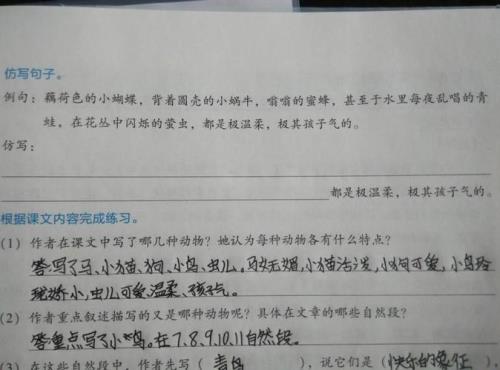 仿写句子。
例句：藕荷色的小蝴蝶，背着圆壳的小蜗牛，嗡嗡的蜜蜂，甚至于水里每夜乱唱的青
蛙，在花丛中闪烁的萤虫，都是极温柔，极其孩子气的。
仿写：
都是极温柔，极其孩子气的。
根据课文内容完成练习。
(1) 作者在课文中写了哪几种动物？她认为每种动物各有什么特点？
答:写了马、小猫、狗、小鸟、虫儿,马妩媚,小猫活泼,小狗可爱,小鸟玲
珑娇小,虫儿可爱、温柔、孩子气。
(2) 作者重点叙述描写的又是哪种动物呢？具体在文章的哪些自然段？
答:重点写了小鸟。在7.8.9.10.11自然段。
(3) 在这些自然段中，作者先写（青鸟），说它们是（快乐的象征）